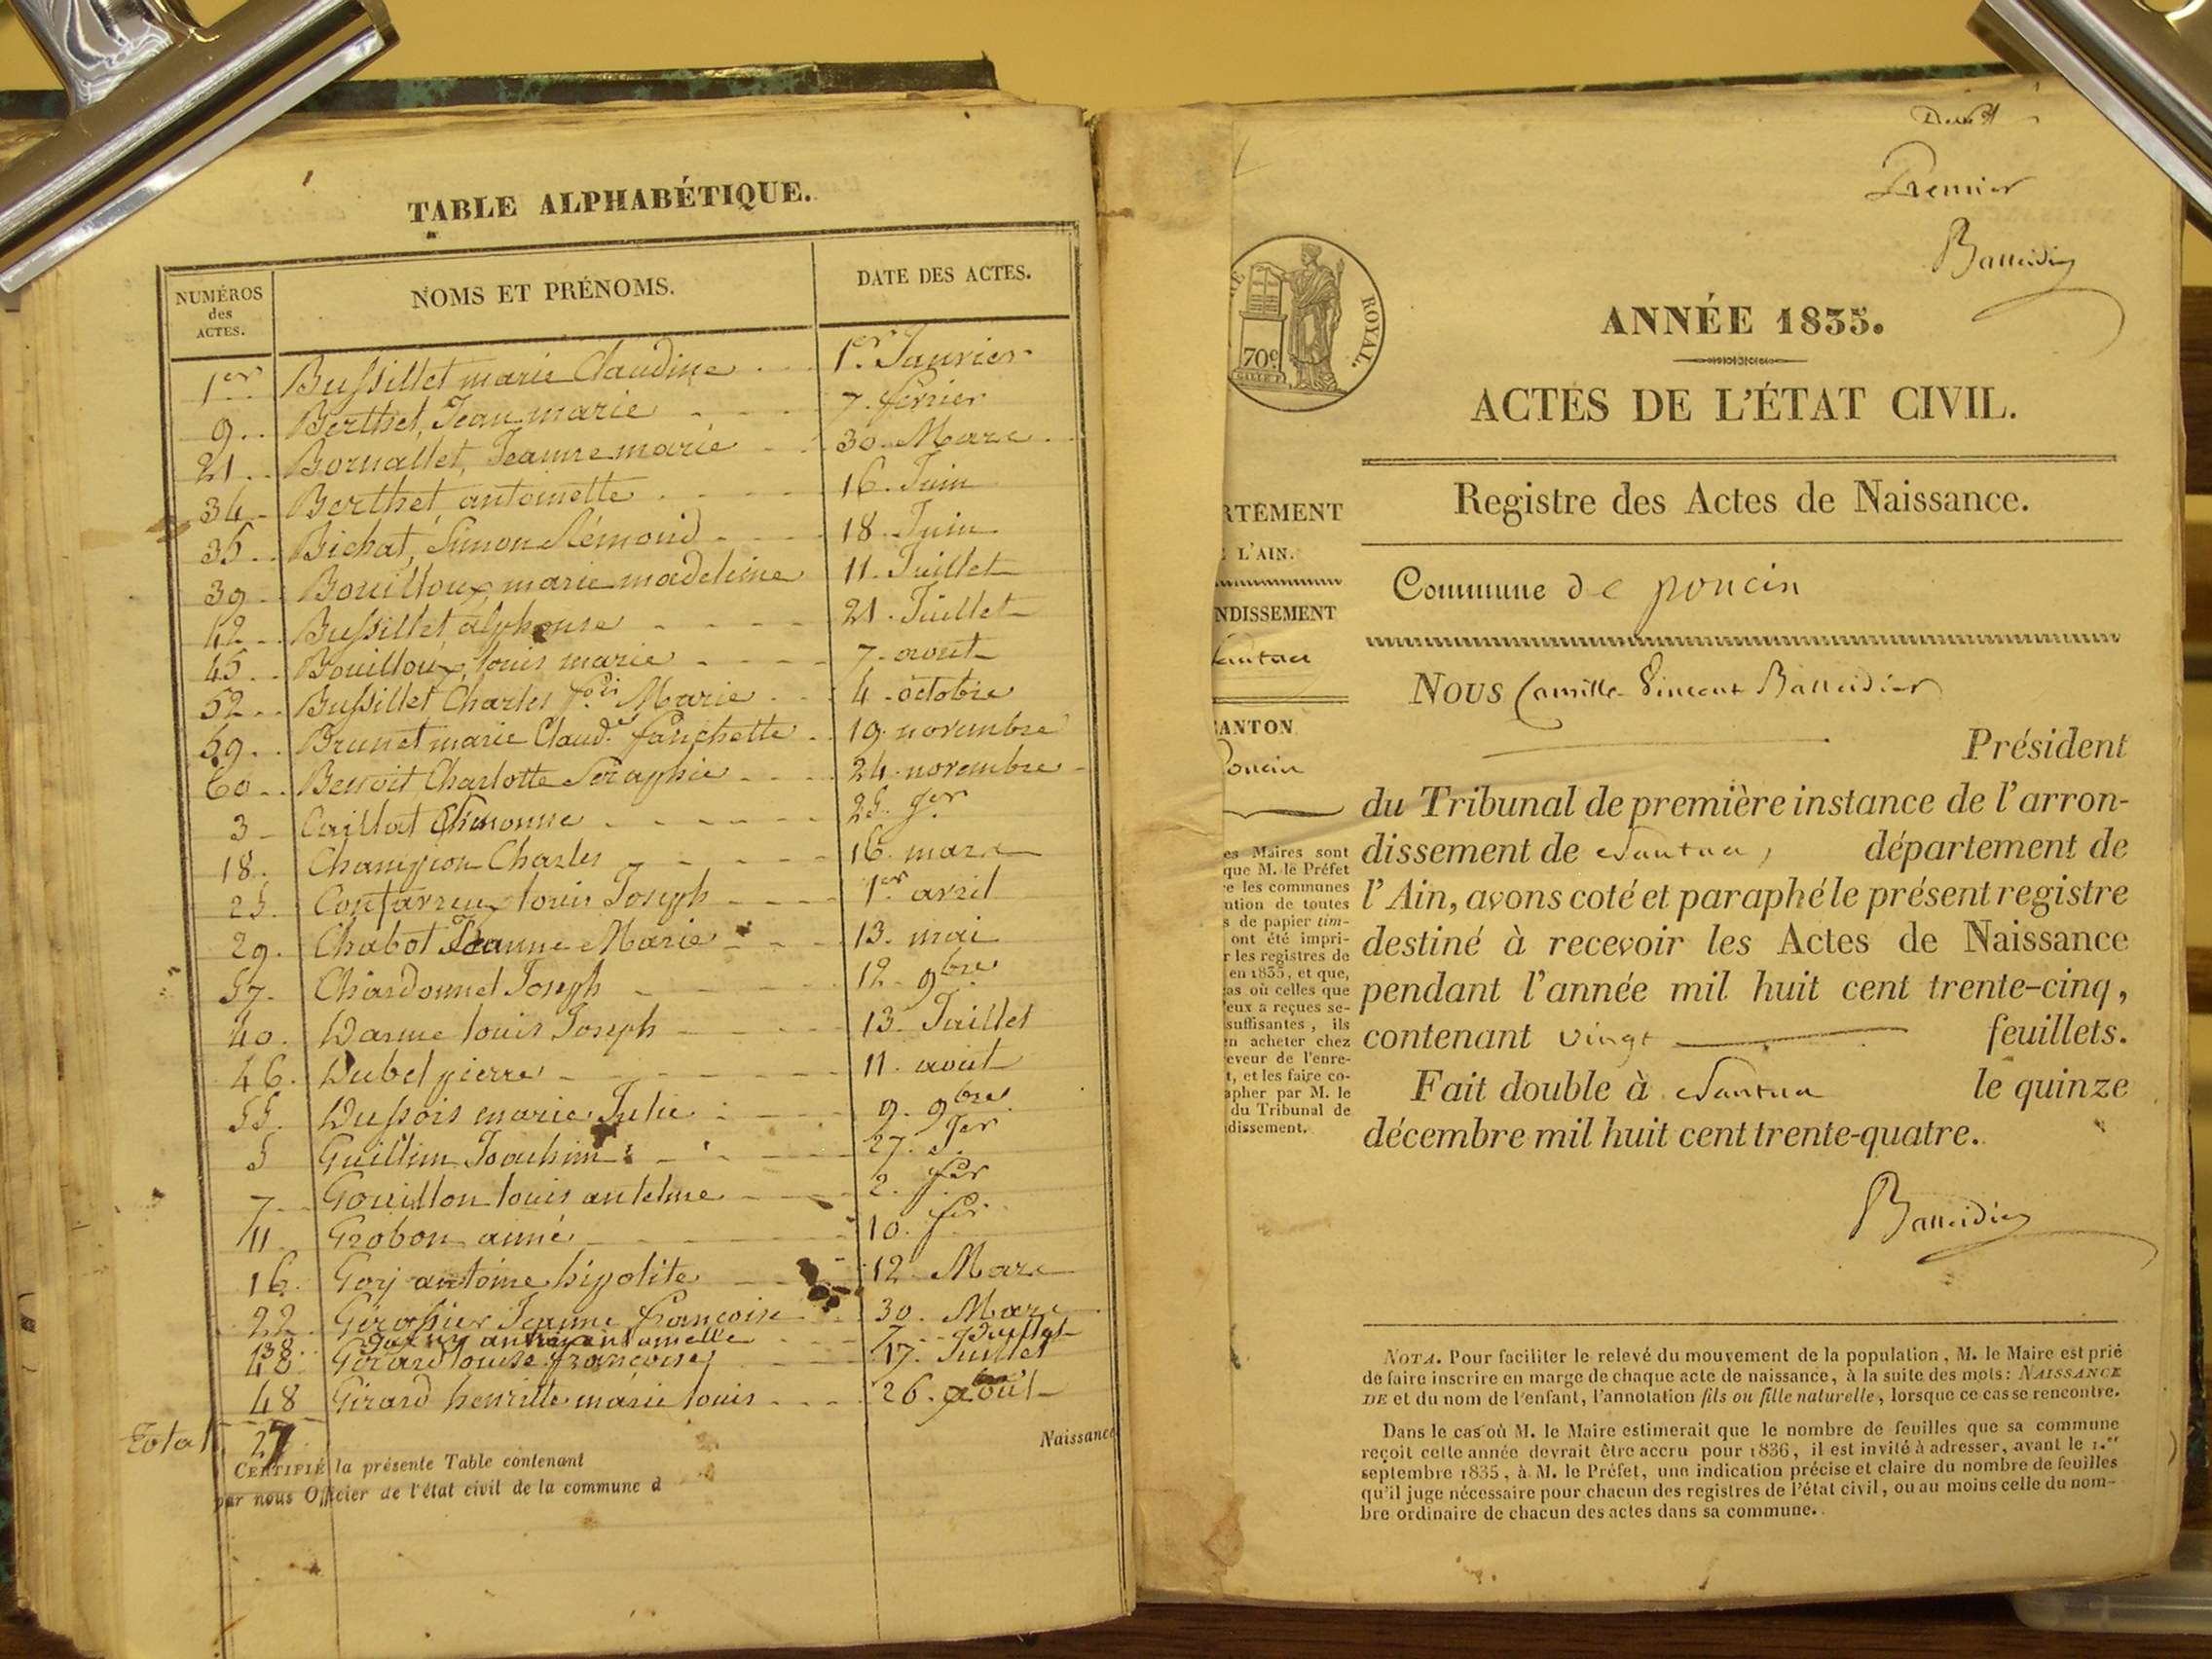 TABLE ALPHABÉTIQUE.
NUMÉROS des ACTES. NOMS ET PRÉNOMS. DATE DES ACTES.
1er Bussillet marie Claudine 1er Janvier
9 Berthet, Jean marie 7 février
21 Bornallet, Jeanne marie 30 Mars
34 Berthet, antoinette 16 Juin
35 Bichat, Simon Rémond 18 Juin
39 Bouilloux, marie madeleine 11 Juillet
42 Bussillet alphonse 21 Juillet
45 Bouilloux, louis marie 7 aout
52 Bussillet Charles fois Marie 4 octobre
59 Brunet marie Claude fanchette 19 novembre
60 Benoit Charlotte Seraphie 24 novembre
3 Caillat 25 Jer
18 Champion Charles 16 mars
25 louis Joseph 1er avril
29 Chabot Jeanne Marie 13 mai
57 Chardonnet Joseph 12 9bre
40 Darme louis Joseph 13 Juillet
46 Dubel pierre 11 août
55 Dussois marie Julie 9 9bre
5 Guillin Joachim 27 Jer
7 Gouillon louis antelme 2 fer
11 Grobon aimé 10 fer
16 Gorj antoine hipolite 12 Mars
22 Jeanne francoise 30 Mars
38 7 Juillet
40 Girard louise francoise 17 Juillet
48 Girard henriette marie louis 26 août
Total 27
Naissance
CERTIFIÉ la présente Table contenant
par nous Officier de l'état civil de la commune d
Premier
Balleidier
ROYAL.
70c
ANNÉE 1835.
ACTES DE L'ÉTAT CIVIL.
Registre des Actes de Naissance.
RTEMENT
L'AIN.
NDISSEMENT
antua
ANTON
oncin
Commune de poncin
NOUS Camille Vincent Balleidier
Président
du Tribunal de première instance de l'arron-
dissement de Nantua, département de
l'Ain, avons coté et paraphé le présent registre
destiné à recevoir les Actes de Naissance
pendant l'année mil huit cent trente-cinq,
contenant vingt feuillets.
Fait double à Nantua le quinze
décembre mil huit cent trente-quatre.
Balleidier
es Maires sont
que M. le Préfet
e les communes
ution de toutes
s de papier tim-
ont été impri-
r les registres de
en 1835, et que,
as où celles que
eux a reçues se-
suffisantes, ils
n acheter chez
eveur de l'enre-
t, et les faire co-
apher par M. le
du Tribunal de
dissement.
NOTA. Pour faciliter le relevé du mouvement de la population, M. le Maire est prié
de faire inscrire en marge de chaque acte de naissance, à la suite des mots: NAISSANCE
DE et du nom de l'enfant, l'annotation fils ou fille naturelle, lorsque ce cas se rencontre.
Dans le cas où M. le Maire estimerait que le nombre de feuilles que sa commune
reçoit cette année devrait être accru pour 1836, il est invité à adresser, avant le 1.er
septembre 1835, à M. le Préfet, une indication précise et claire du nombre de feuilles
qu'il juge nécessaire pour chacun des registres de l'état civil, ou au moins celle du nom-
bre ordinaire de chacun des actes dans sa commune.